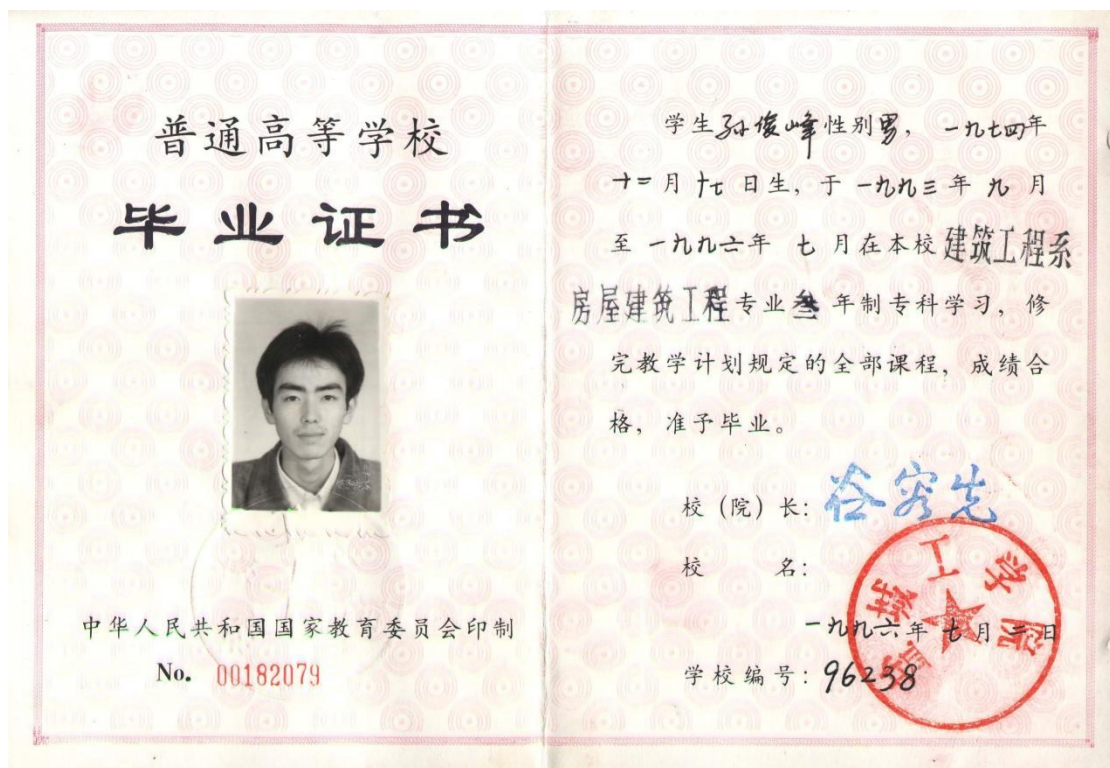 普通高等学校
毕业证书
中华人民共和国国家教育委员会印制
No. 00182079
学生孙俊峰性别男，一九七四年
十二月十七日生，于一九九三年九月
至一九九六年七月在本校建筑工程系
房屋建筑工程专业叁年制专科学习，修
完教学计划规定的全部课程，成绩合
格，准予毕业。
校（院）长：谷安先
校名：
工学院
一九九六年七月二日
学校编号：96238